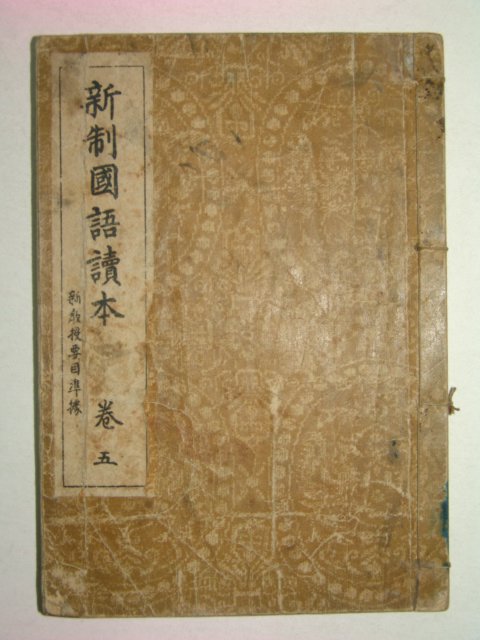 新制國語讀本 卷五
新敎授要目準據